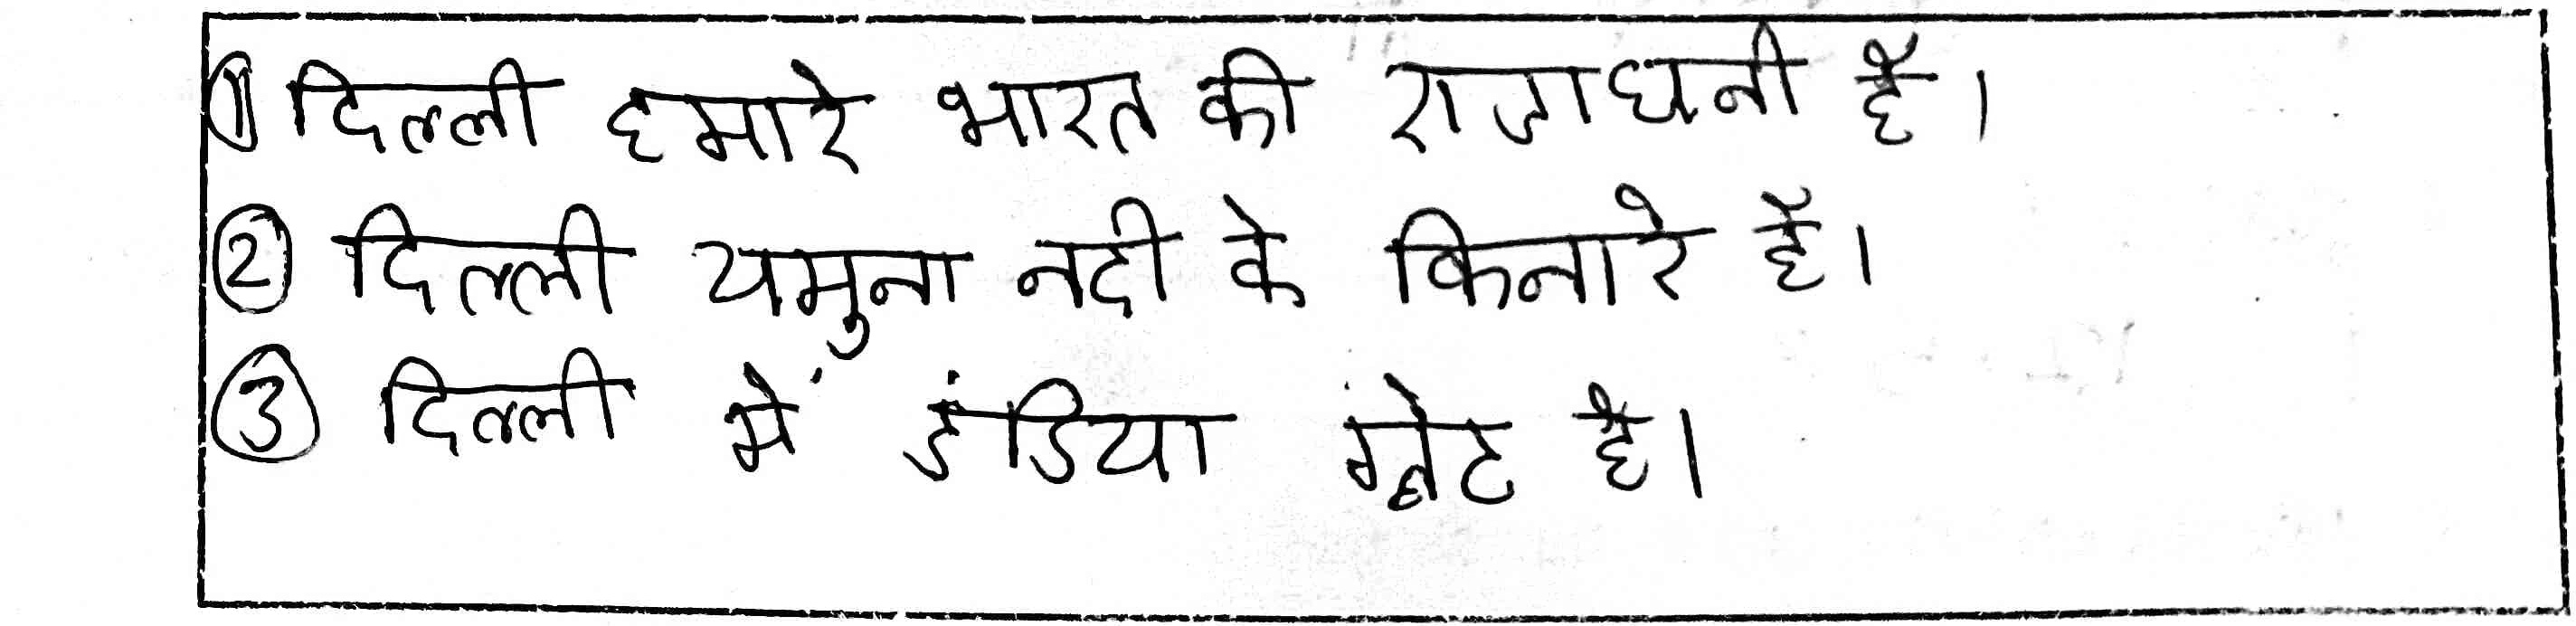 ① दिल्ली हमारे भारत की राजाधानी है।
② दिल्ली यमुना नदी के किनारे है।
③ दिल्ली में इंडिया गेट है।